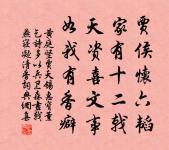 賈侯懷六韜
家有十二戟
天資喜文事
如我有香癖
黃庭堅賈天錫惠寶薰
乞詩多以兵衛森畫戟
燕寢凝清香